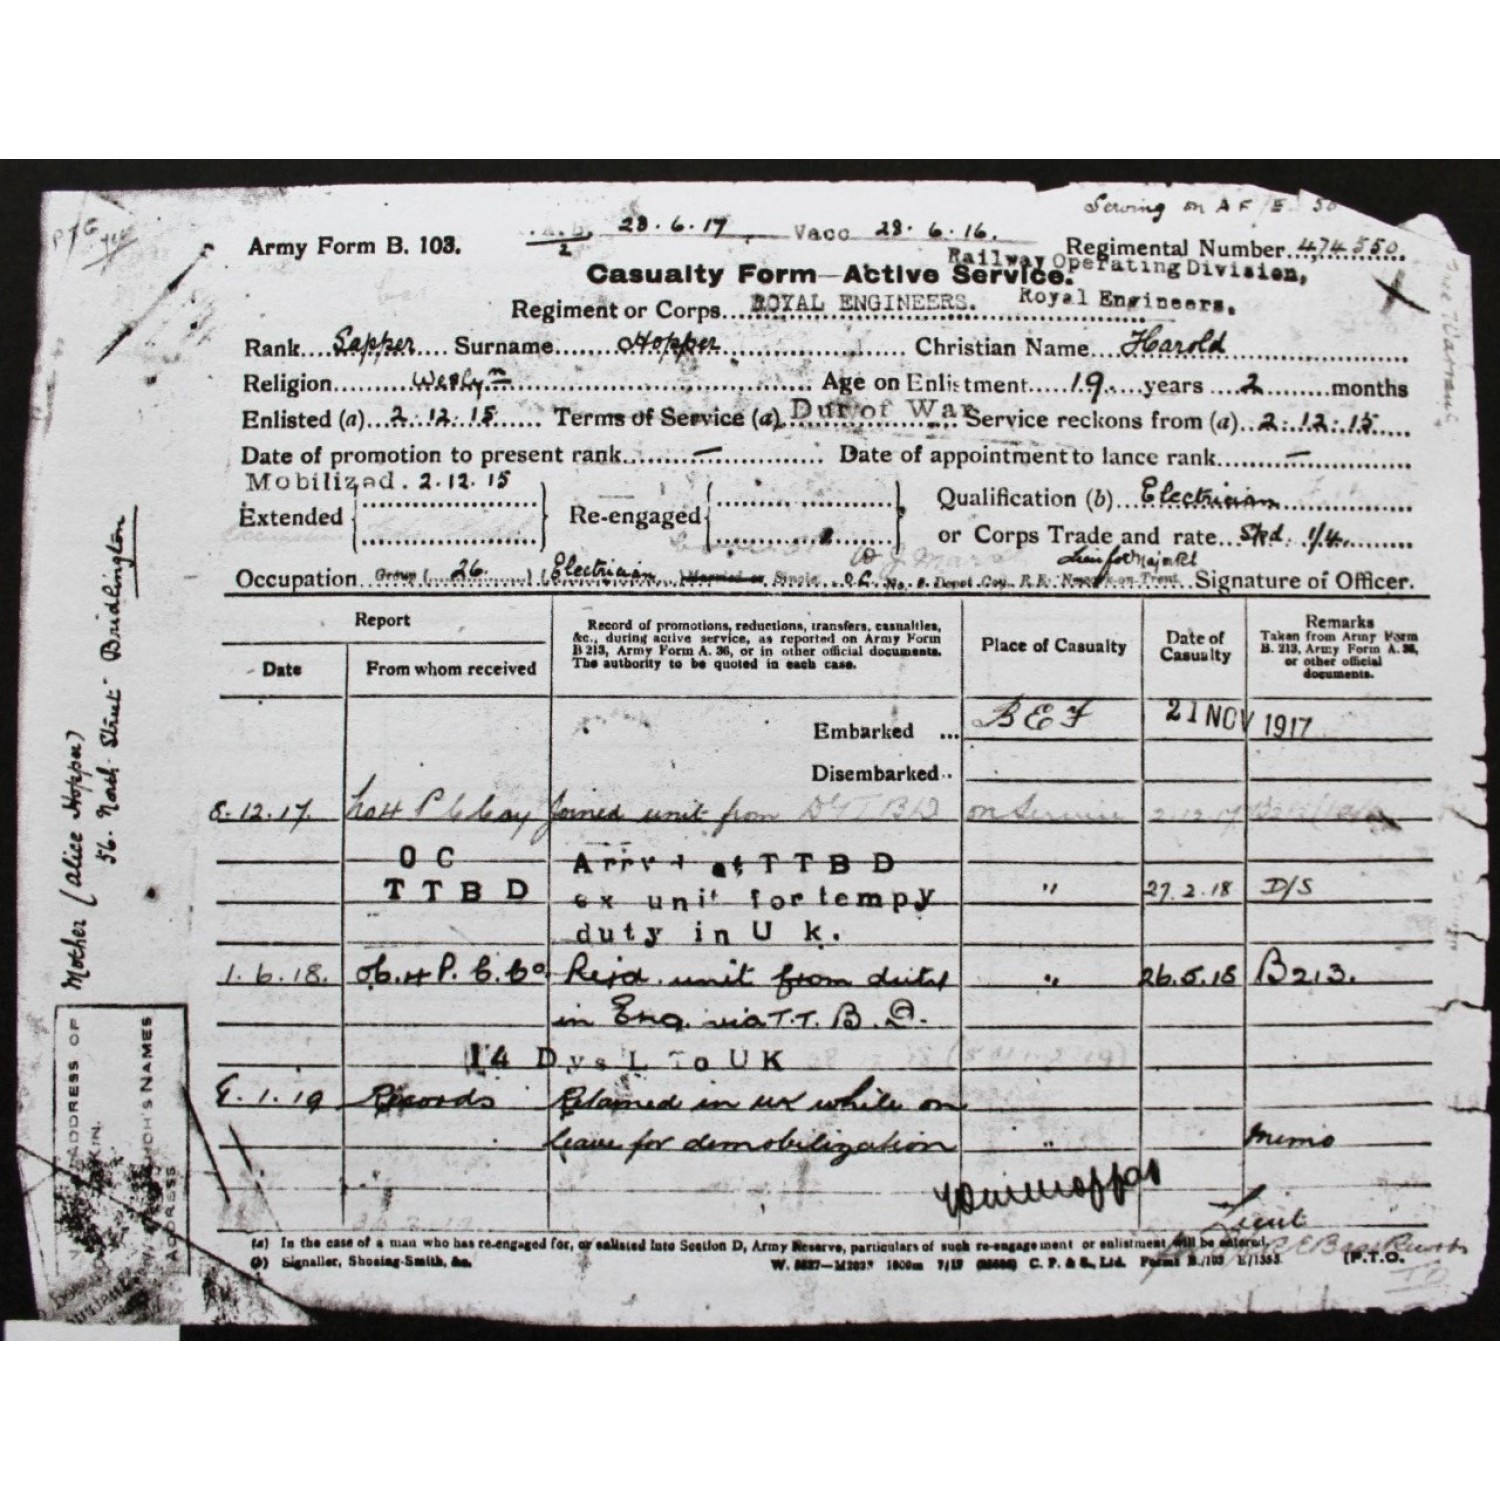 Serving on A F / E.
28.6.17 Vacc 28.6.16.
2
Army Form B. 103.
Regimental Number 474550
Casualty Form—Active Service.
Railway Operating Division,
Royal Engineers.
Regiment or Corps ROYAL ENGINEERS.
Rank Sapper Surname Hopper Christian Name Harold
Religion Wesly n Age on Enlistment 19 years 2 months
Enlisted (a) 2.12.15 Terms of Service (a) Dur of War Service reckons from (a) 2.12.15
Date of promotion to present rank — Date of appointment to lance rank —
Mobilized. 2.12.15
Extended Re-engaged Qualification (b) Electrician
or Corps Trade and rate Skd. 1/4
Occupation Group ( 26. ) ( Electrician Married or Single O.C. No. Depot Coy. R.E. Signature of Officer.
Report
Date
From whom received
Record of promotions, reductions, transfers, casualties, &c., during active service, as reported on Army Form B 213, Army Form A. 36, or in other official documents. The authority to be quoted in each case.
Place of Casualty
Date of Casualty
Remarks
Taken from Army Form B. 213, Army Form A. 36, or other official documents.
Embarked ... B E F 21 NOV 1917
Disembarked..
8.12.17. Joined unit from on Service
O C Arrv d at T T B D
T T B D ex unit for tempy " 27.2.18 D/S
duty in U k.
1.6.18. P. C. Co Rejd. unit from duty " 26.5.18 B213.
in Eng. via T.T.B.D.
14 Dys L To UK
9.1.19 Records Retained in UK while on
leave for demobilization " Memo
Lieut
R E Base Records
(a) In the case of a man who has re-engaged for, or enlisted into Section D, Army Reserve, particulars of such re-engagement or enlistment will be entered.
(b) Signaller, Shoeing-Smith, &c. C. P. & S., Ltd. Forms B./103 E/1353. (P.T.O.
Mother (Alice Hopper)
56. North Street Bridlington
ADDRESS OF
KIN.
NAMES
ADDRESS